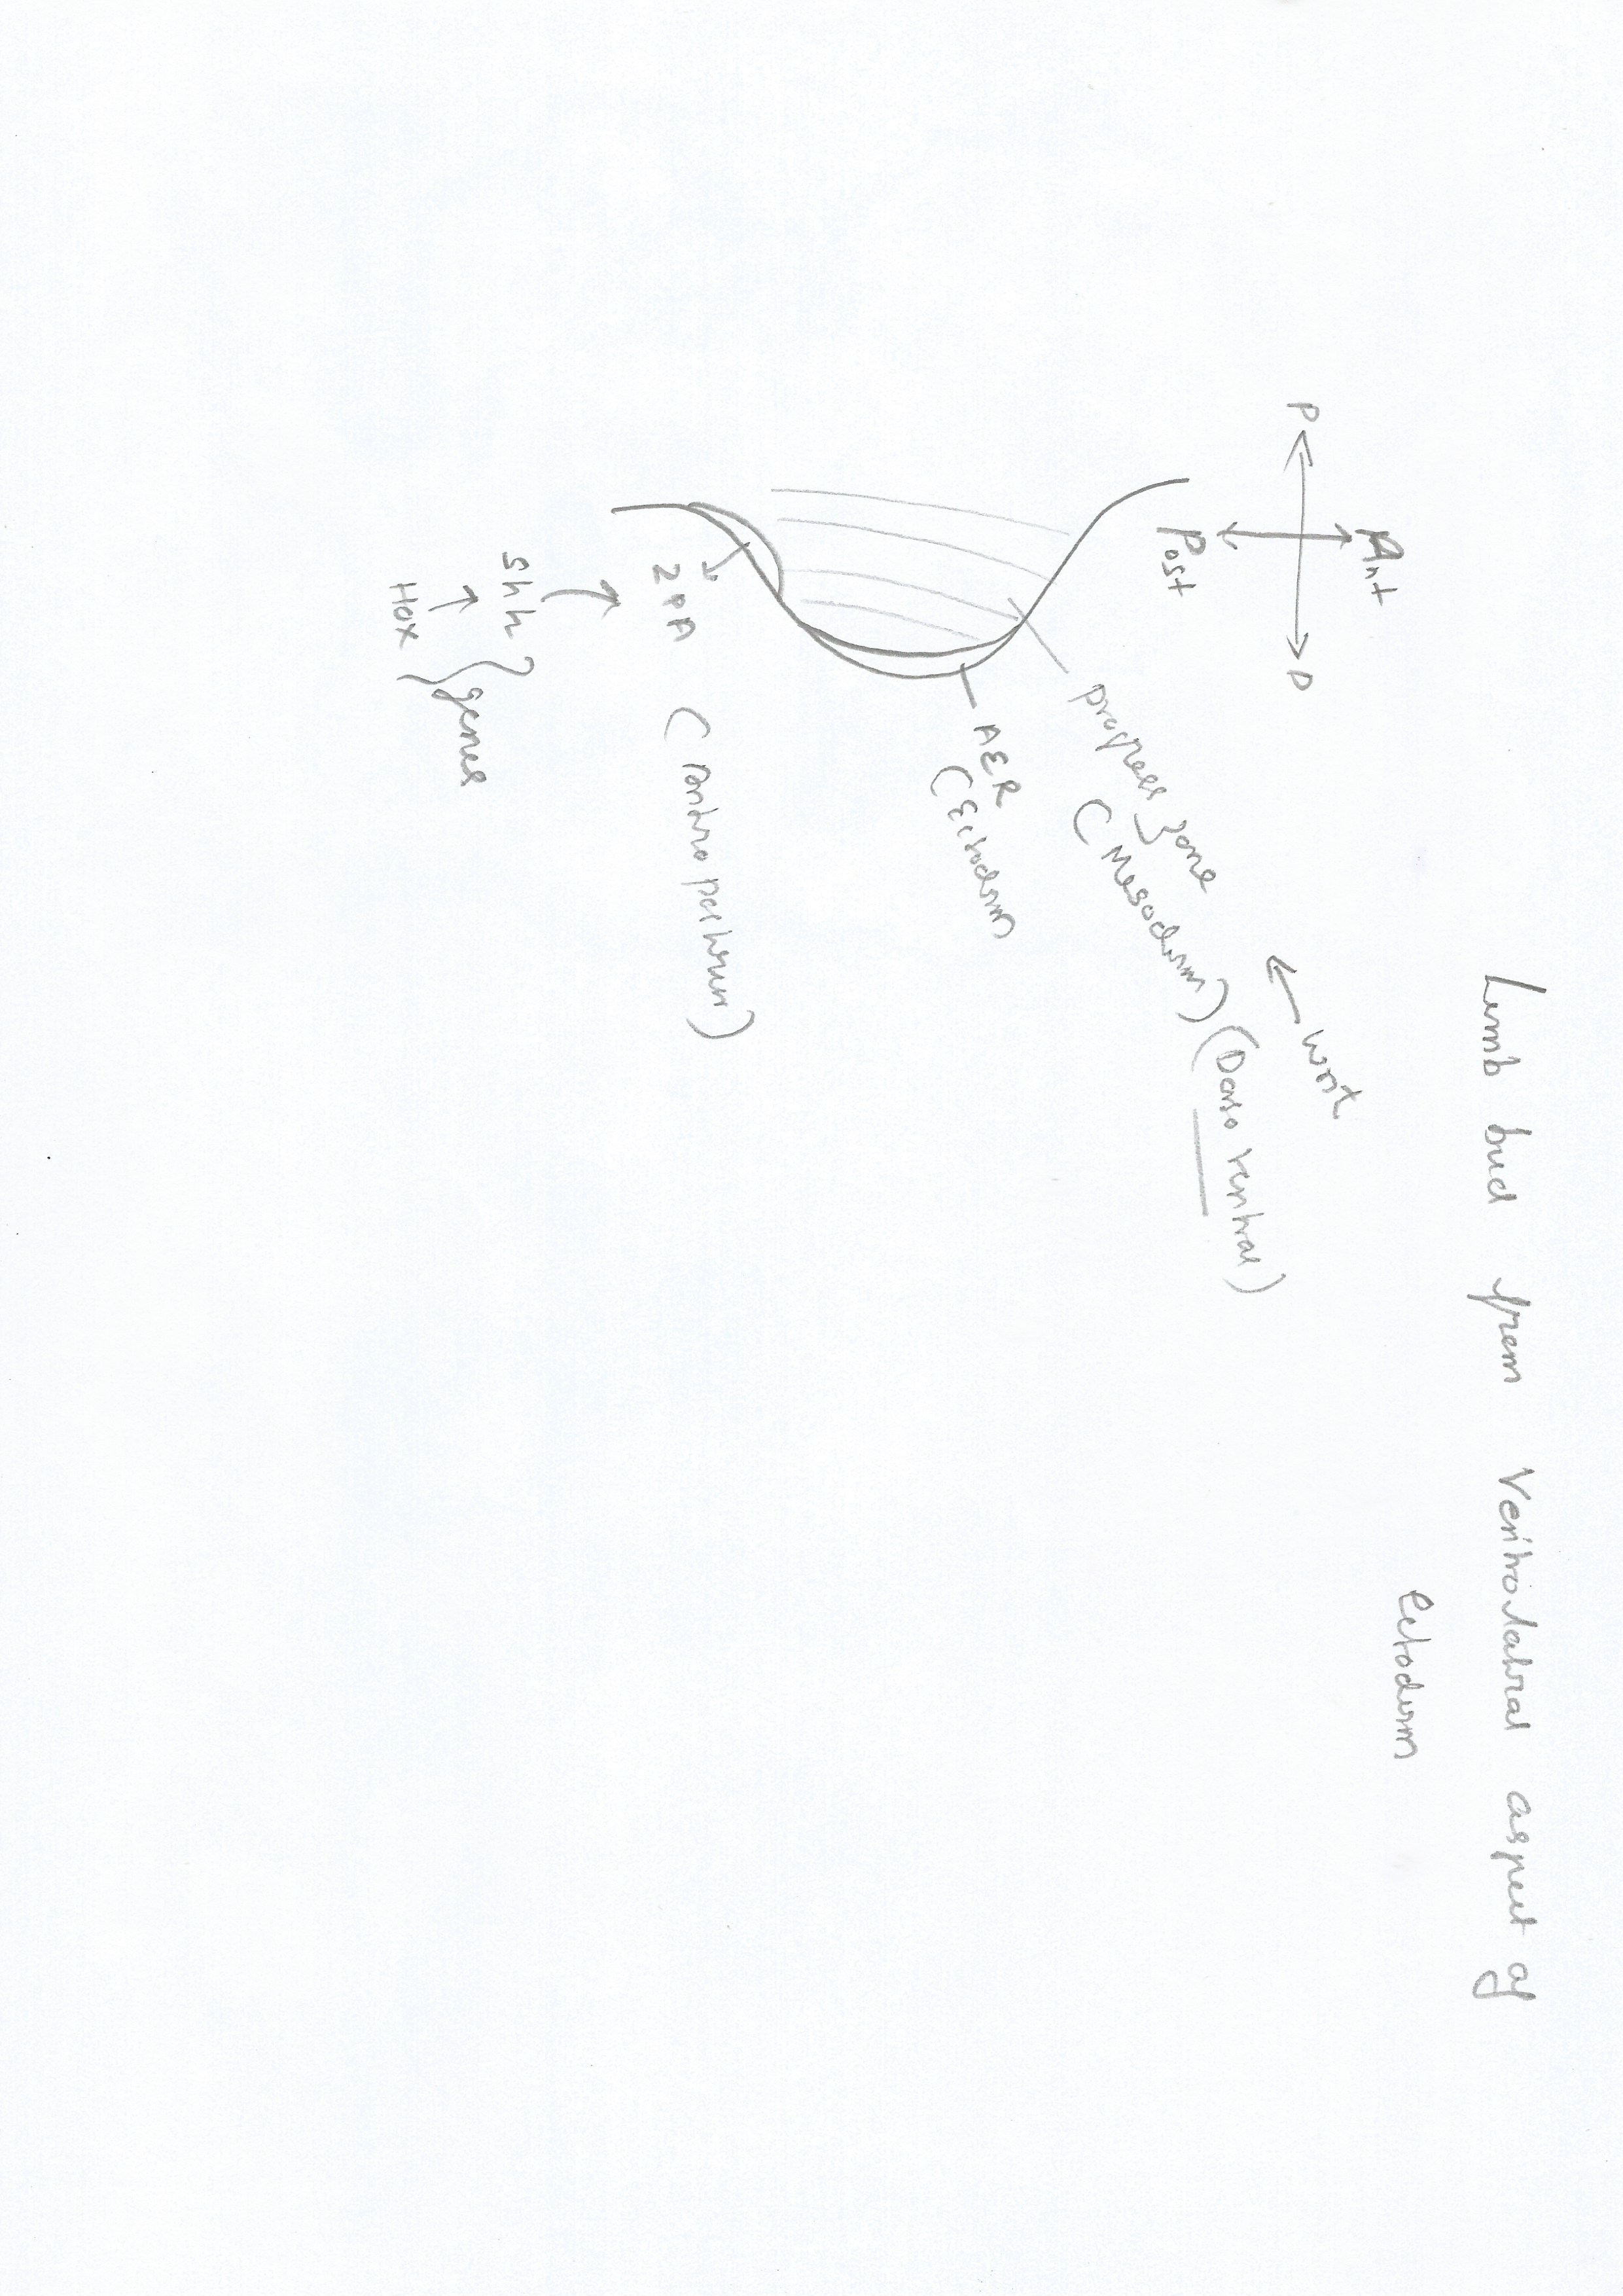 Limb bud from Ventrolateral aspect of
Ectoderm
Ant
P
D
Post
Wnt
progress zone
(Mesoderm) (Dorso ventral)
AER
(Ectoderm
ZPA (control pattern)
Shh
Hox
genes